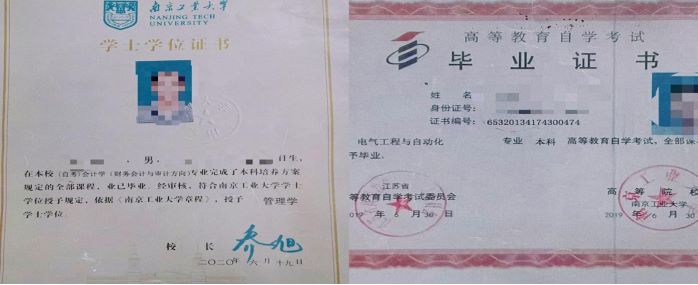 南京工业大学
NANJING TECH
UNIVERSITY
学士学位证书
男
日生,
在本校(自考)会计学(财务会计与审计方向)专业完成了本科培养方案
规定的全部课程,业已毕业。经审核,符合南京工业大学学士
学位授予规定,依据《南京工业大学章程》,授予 管理学
学士学位。
校 长
二〇二〇年六月十九日
高等教育自学考试
毕业证书
姓 名
身份证号:
证书编号: 65320134174300474
电气工程与自动化 专业 本科 高等教育自学考试,全部课
予毕业。
江苏省
等教育自学考试委员会
2019 年 6 月 30 日
高 等 院 校
南京工业大学
2019 年 6 月 30